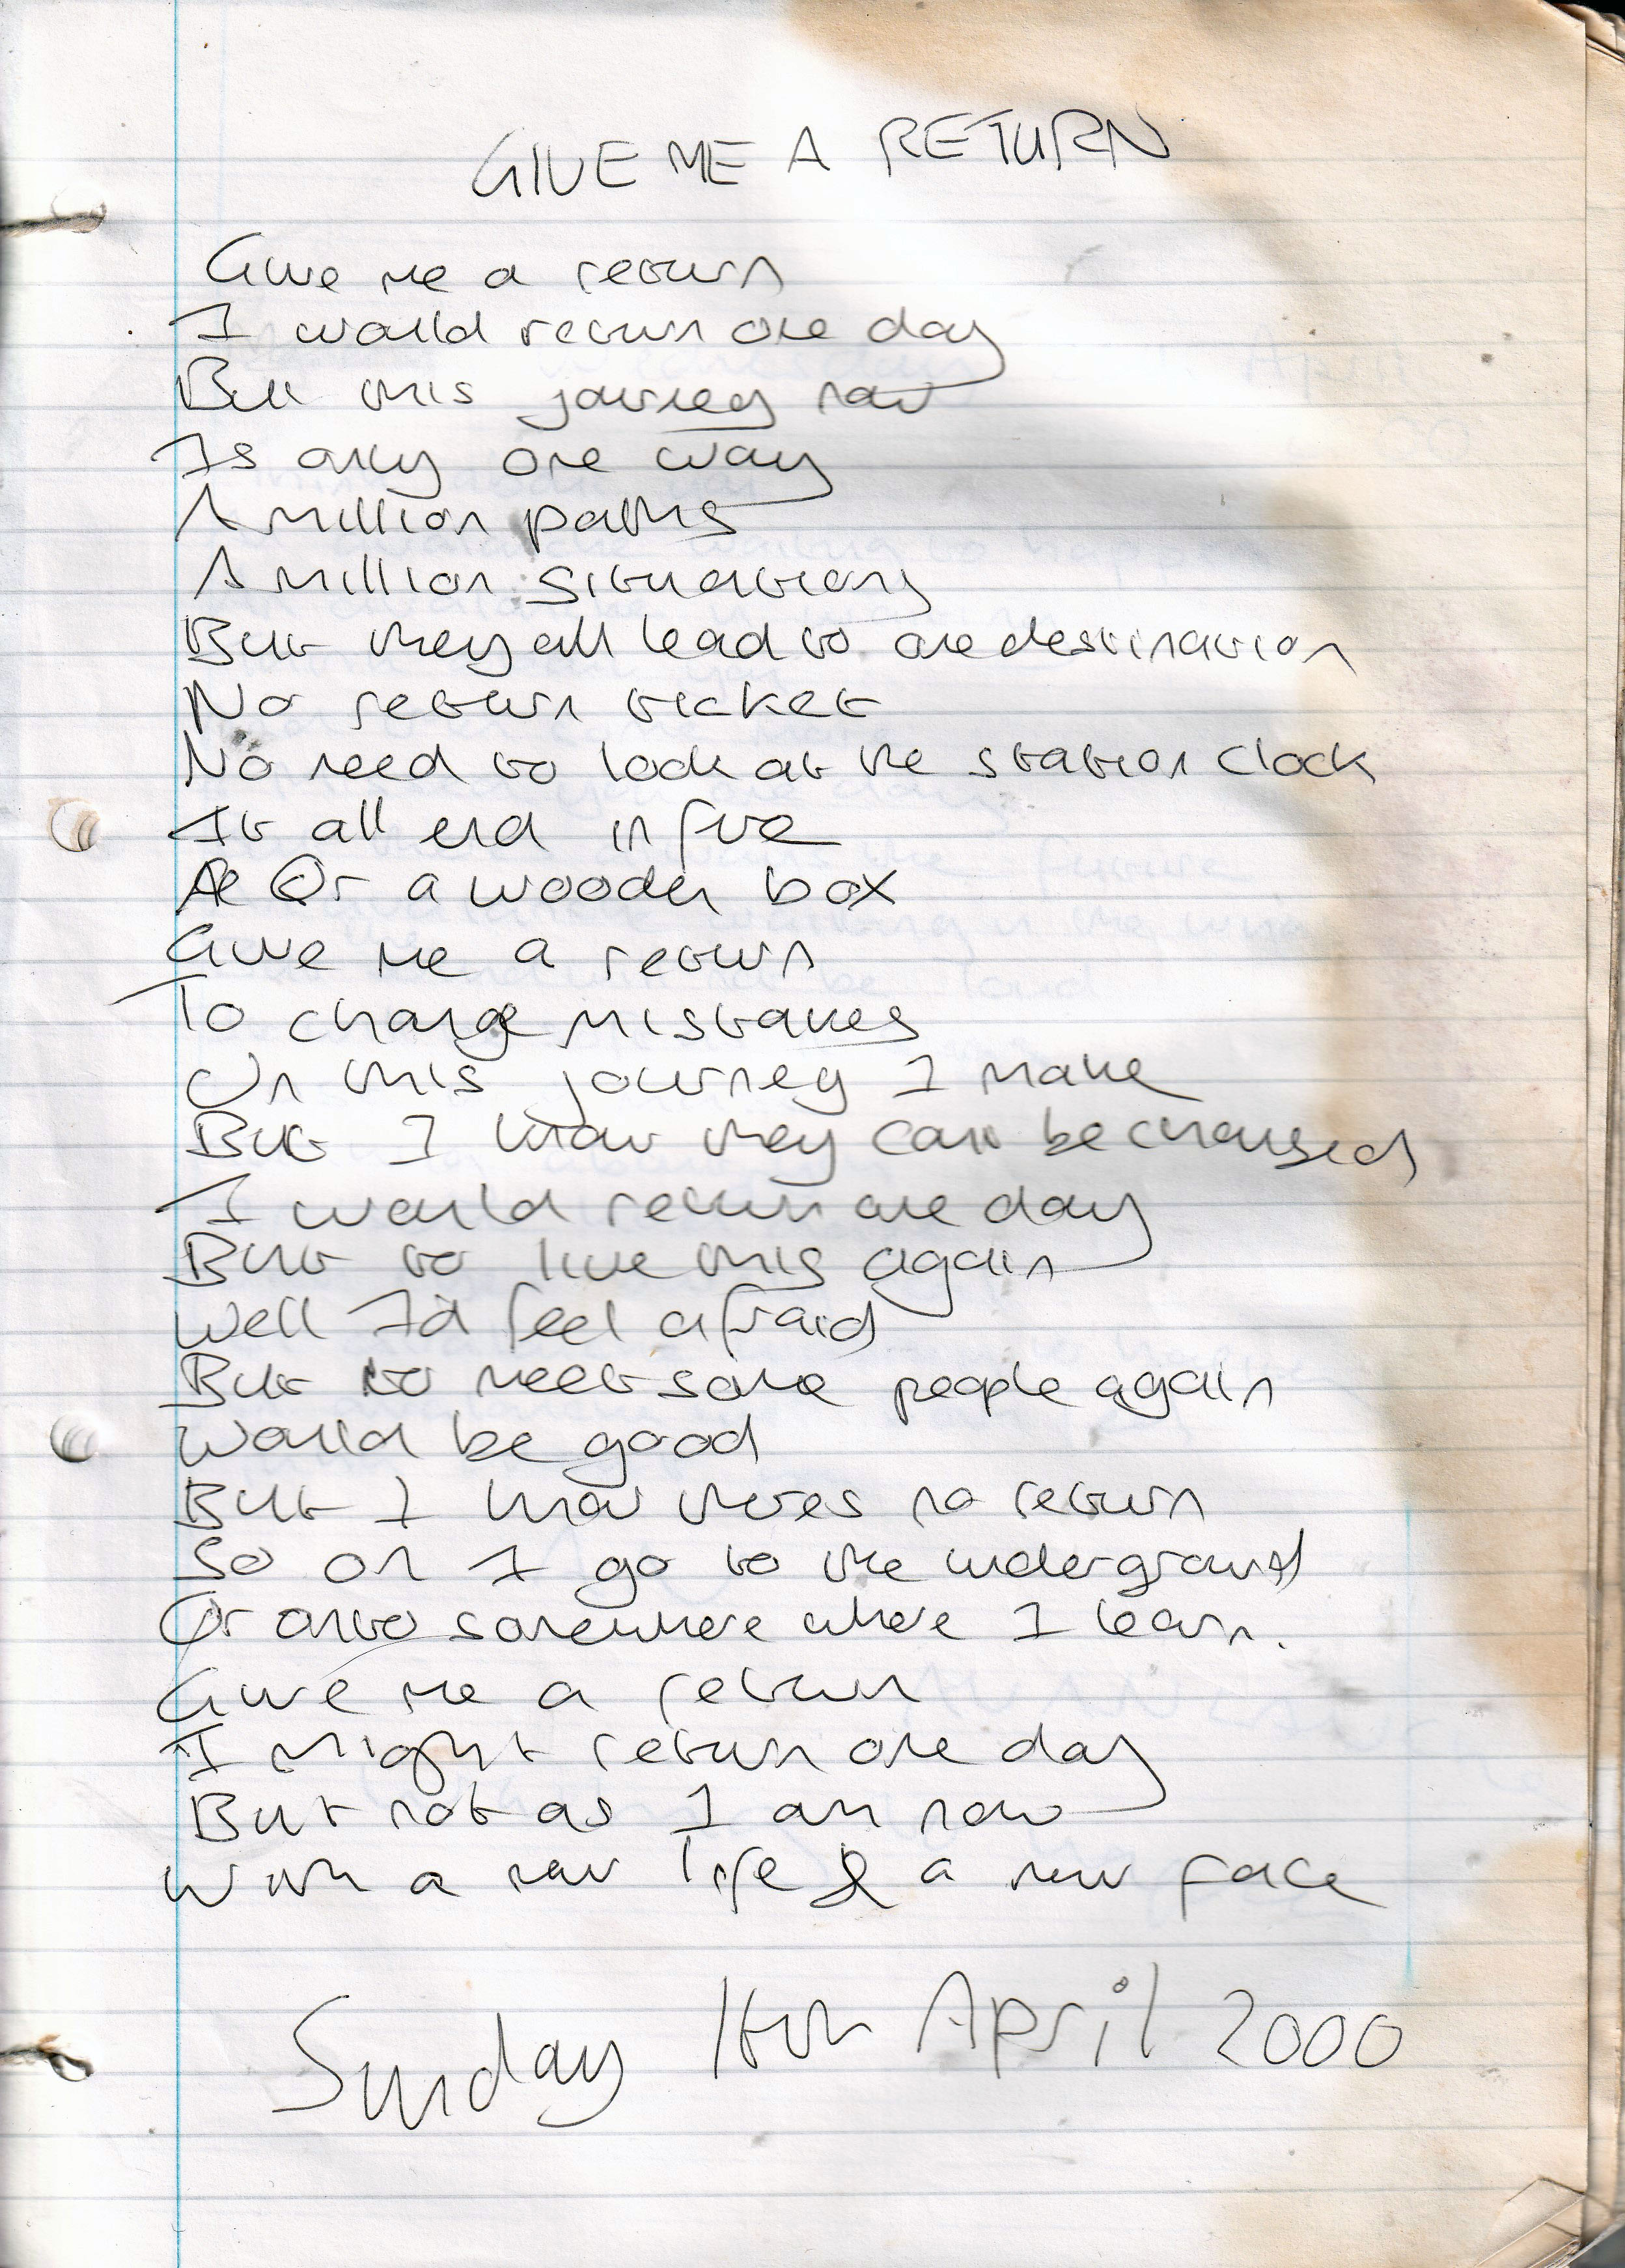 GIVE ME A RETURN
Give me a return
I would return one day
But this journey now
Is only one way
A million paths
A million situations
But they all lead to one destination
No return ticket
No need to look at the station clock
It all end in fire
Or a wooden box
Give me a return
To change mistakes
On this journey I make
But I know they can be changed
I would return one day
But to live this again
Well I'd feel afraid
But to meet some people again
Would be good
But I know theres no return
So on I go to the underground
Or onto somewhere where I learn.
Give me a return
I might return one day
But not as I am now
With a new life & a new face
Sunday 16th April 2000